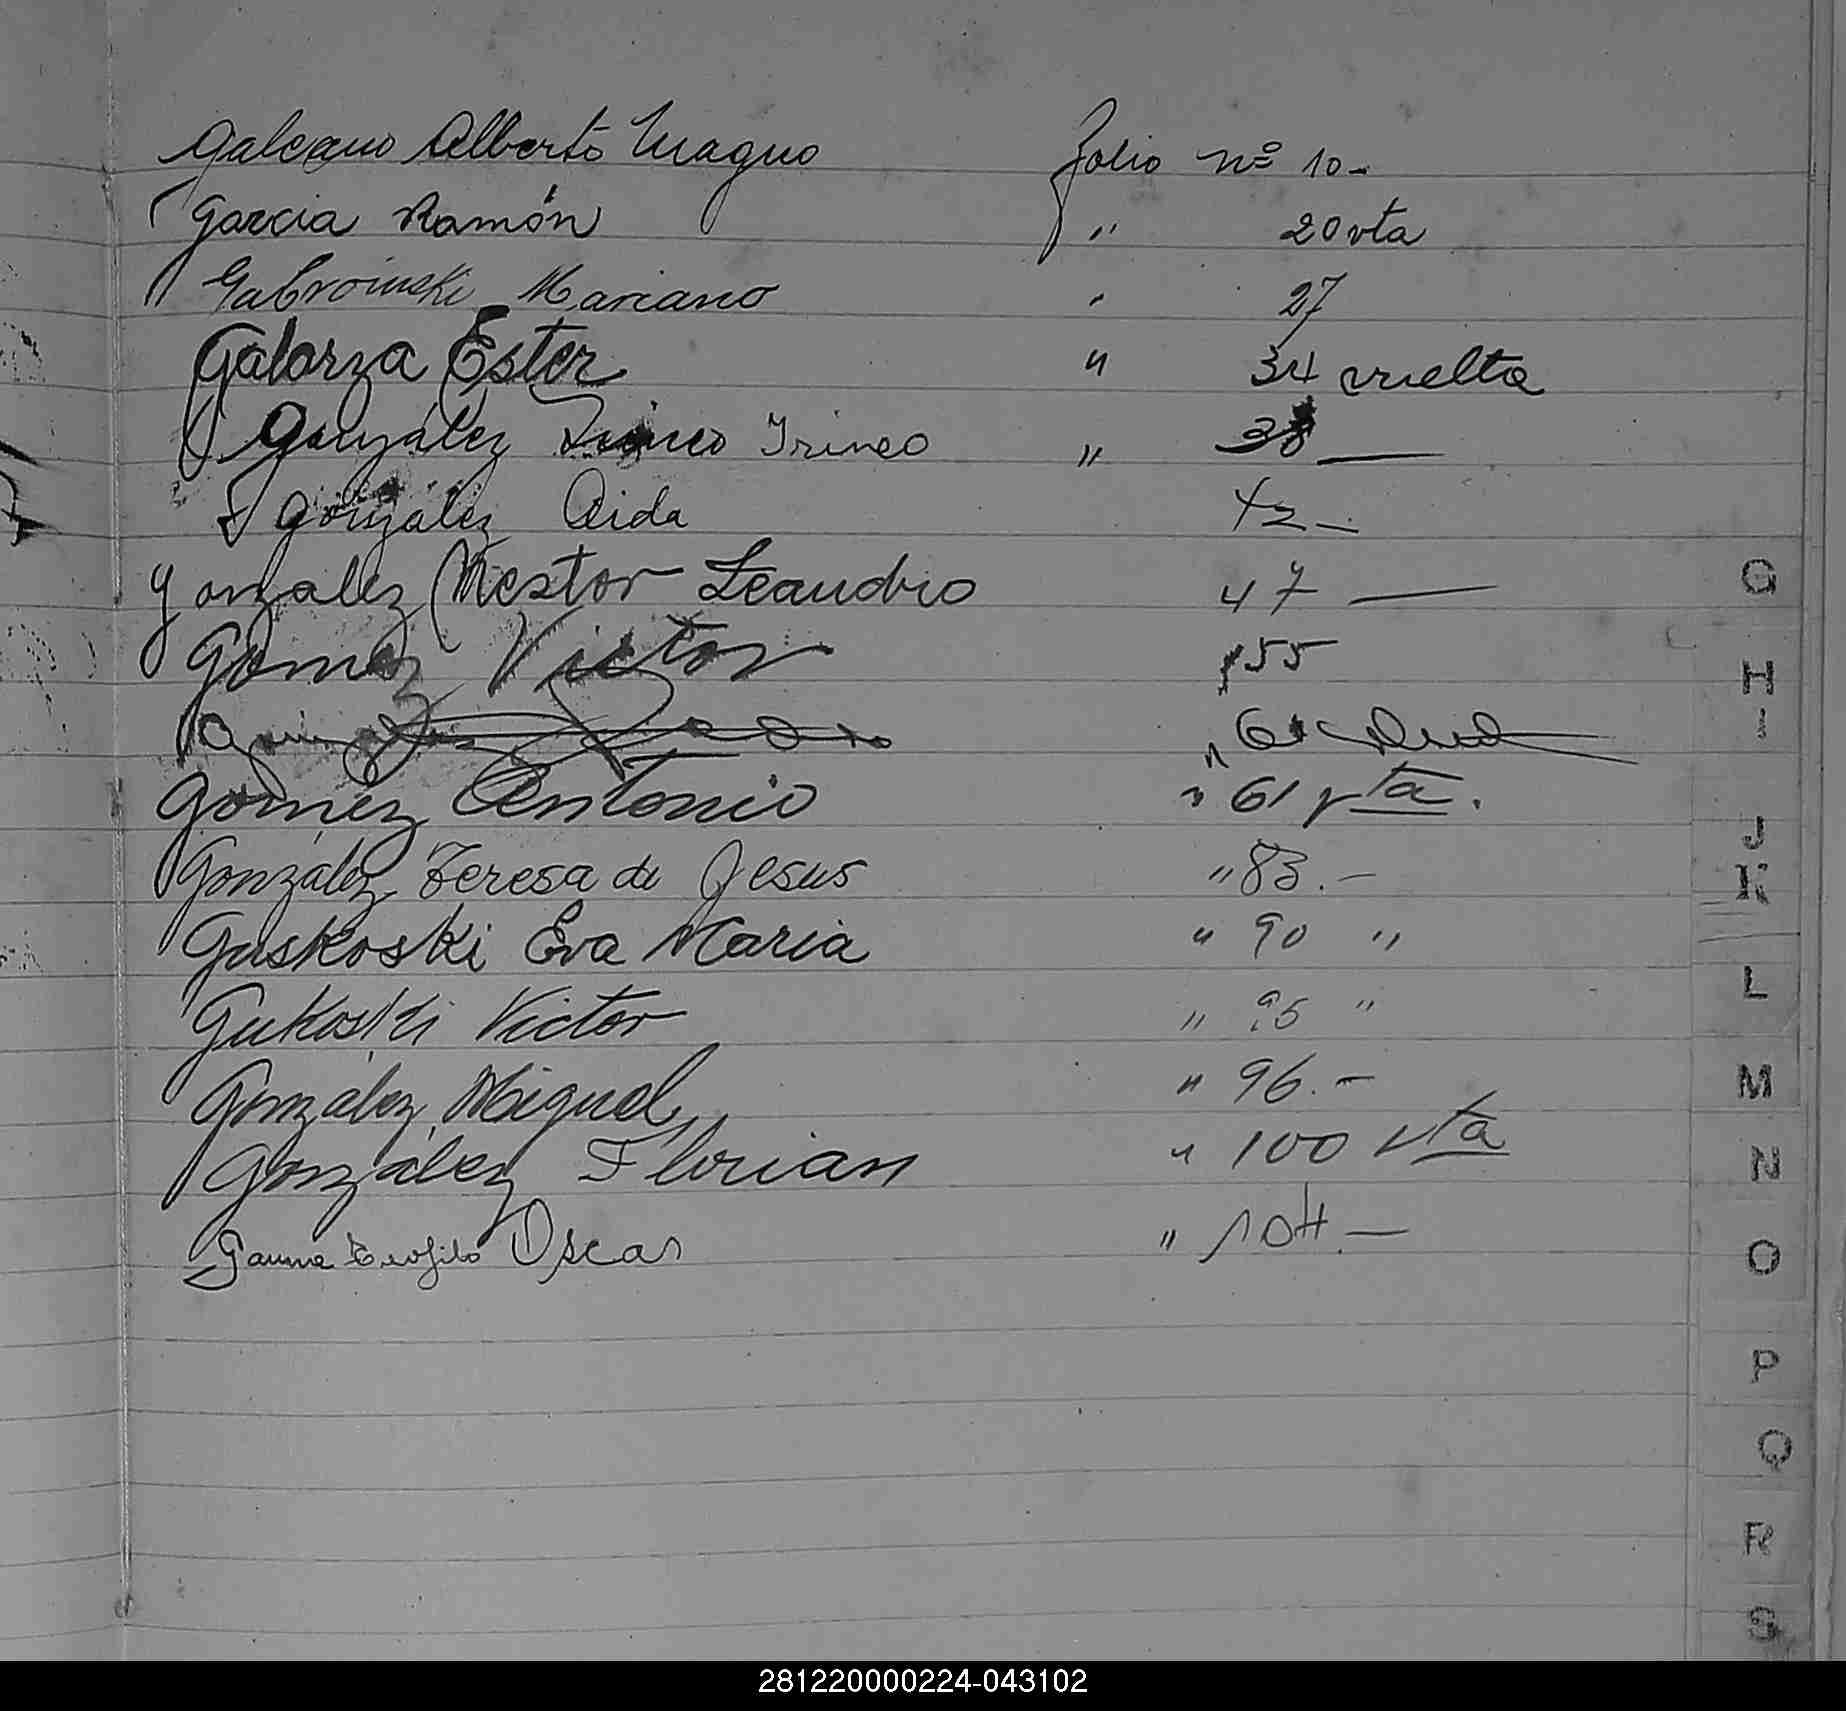 Galeano Alberto Magno Folio nº 10-
Garcia Ramón " 20 vta
Gabroinski Mariano " 27
Galarza Ester " 34 vuelta
González Irineo " 38 —
González Aida 42 -
Gonzalez Nestor Leandro 47 —
Gomez Victor " 55
" 61
Gomez Antonio " 61 vta.
González Teresa de Jesus " 83.-
Guskoski Eva Maria " 90 "
Gukoski Victor " 95 "
González Miguel " 96.-
González Florian " 100 vta
Gauna Teofilo Oscar " 104.-
G
H
I
J
K
L
M
N
O
P
Q
R
S
281220000224-043102